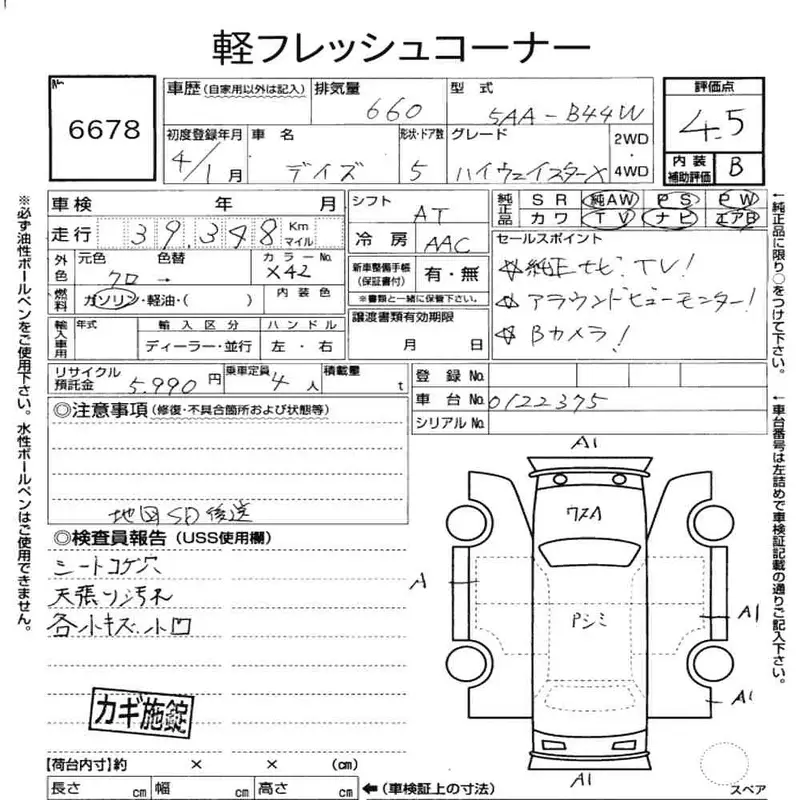 軽フレッシュコーナー
№ 6678
車歴 (自家用以外は記入)
排気量 660
型式 5AA-B44W
評価点 4.5
初度登録年月 4/1月
車名 デイズ
形状・ドア数 5
グレード ハイウェイスターX
2WD・4WD
内装補助評価 B
車検 年 月
シフト AT
純正品 SR 純AW PS PW
カワ TV ナビ エアB
走行 39,348 Km マイル
冷房 AAC
セールスポイント
☆純正ナビ・TV!
☆アラウンドビューモンター!
☆Bカメラ!
外色 元色 クロ 色替 → カラーNo. X42
新車整備手帳(保証書付) 有・無
※書類と一緒に保管下さい。
燃料 ガソリン・軽油・( )
内装色
譲渡書類有効期限
月 日
輸入車用 年式 輸入区分 ハンドル
ディーラー・並行 左・右
リサイクル預託金 5,990円
乗車定員 4人
積載量 t
登録 No.
車台 No. 0122375
シリアル No.
◎注意事項 (修復・不具合箇所および状態等)
地図SD後送
◎検査員報告 (USS使用欄)
シートコゲ穴
天張り汚れ
各小キズ・小凹
カギ施錠
A1
ワスA
A
Pシミ
A1
A1
A1
スペア
【荷台内寸】約 × × (cm)
長さ cm 幅 cm 高さ cm
←(車検証上の寸法)
※必ず油性ボールペンをご使用下さい。水性ボールペンはご使用できません。
←純正品に限り○をつけて下さい。
←車台番号は左詰めで車検証記載の通りご記入下さい。